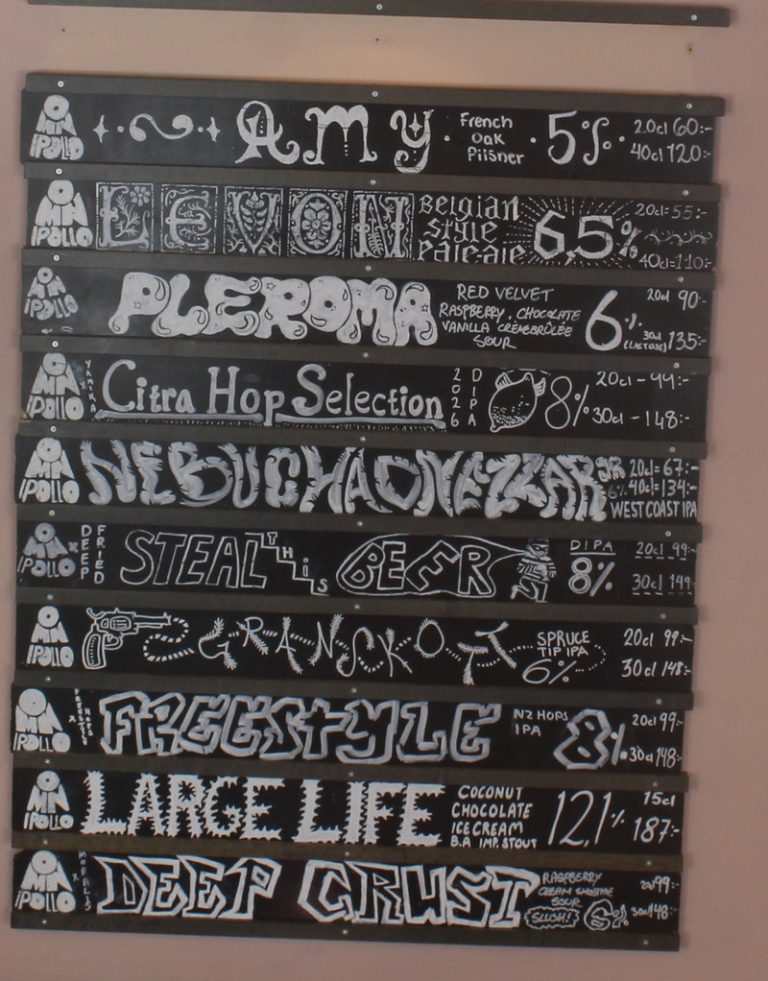 OMNIPOLLO AMY French Oak Pilsner 5% 20cl 60:- 40cl 120:-
OMNIPOLLO LEVON Belgian style Pale-ale 6,5% 20cl=55:- 40cl=110:-
OMNIPOLLO PLEROMA RED VELVET RASPBERRY, CHOCOLATE VANILLA CRÈMEBRÛLÉE SOUR 6% (LACTOSE) 20cl 90:- 30cl 135:-
OMNIPOLLO X YAKIMA Citra Hop Selection 2026 DIPA 8% 20cl - 99:- 30cl - 148:-
OMNIPOLLO NEBUCHADNEZZAR JR 6% 20cl=67:- 40cl=134:- WEST COAST IPA
OMNIPOLLO X DEEP FRIED STEAL THIS BEER DIPA 8% 20cl 99:- 30cl 149:-
OMNIPOLLO GRANSKOTT SPRUCE TIP IPA 6% 20cl 99:- 30cl 148:-
OMNIPOLLO X FREESTYLE HOPS FREESTYLE NZ HOPS IPA 8% 20cl 99:- 30cl 148:-
OMNIPOLLO LARGE LIFE COCONUT CHOCOLATE ICE CREAM B.A IMP. STOUT 12,1% 15cl 187:-
OMNIPOLLO X DEEP CRUST RASPBERRY CREAM SMOOTHIE SOUR SLUSH! 6% 20cl 99:- 30cl 148:-